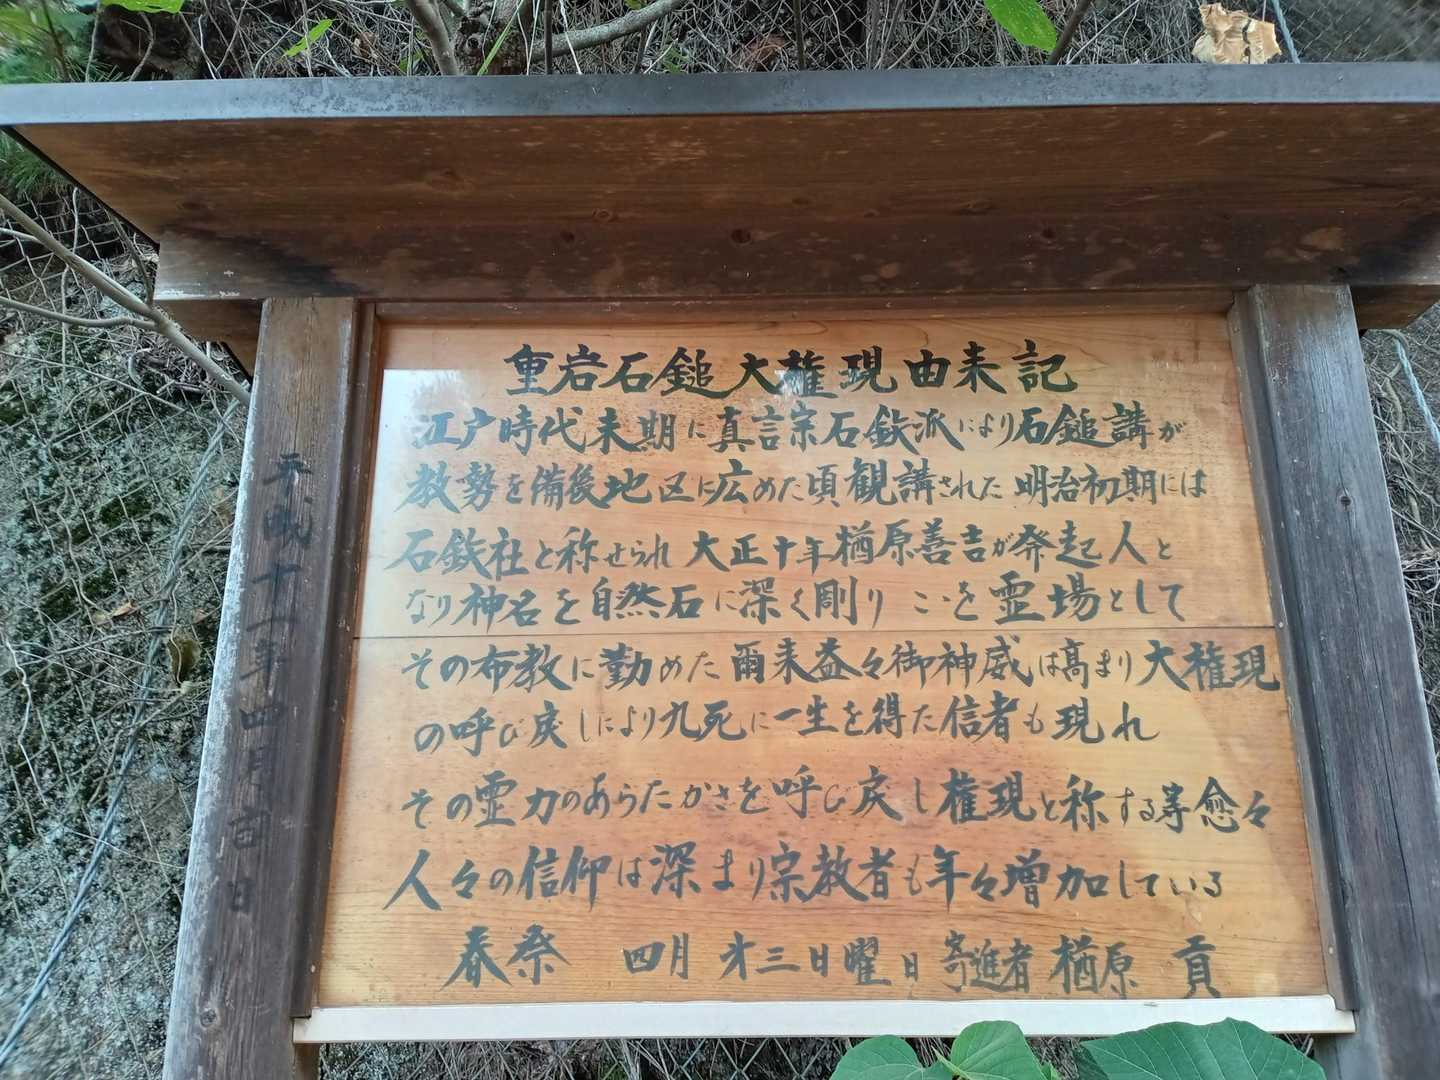 重岩石鎚大権現由来記
江戸時代末期に真言宗石鉄派により石鎚講が
教勢を備後地区に広めた頃観講された明治初期には
石鉄社と称せられ大正十年楢原善吉が発起人と
なり神名を自然石に深く剛りこゝを霊場として
その布教に勤めた爾来益々御神威は高まり大権現
の呼び戻しにより九死に一生を得た信者も現れ
その霊力のあらたかさを呼び戻し権現と称する等愈々
人々の信仰は深まり宗教者も年々増加している
春祭 四月 才三日曜日 寄進者 楢原 貢
平成十一年四月 日